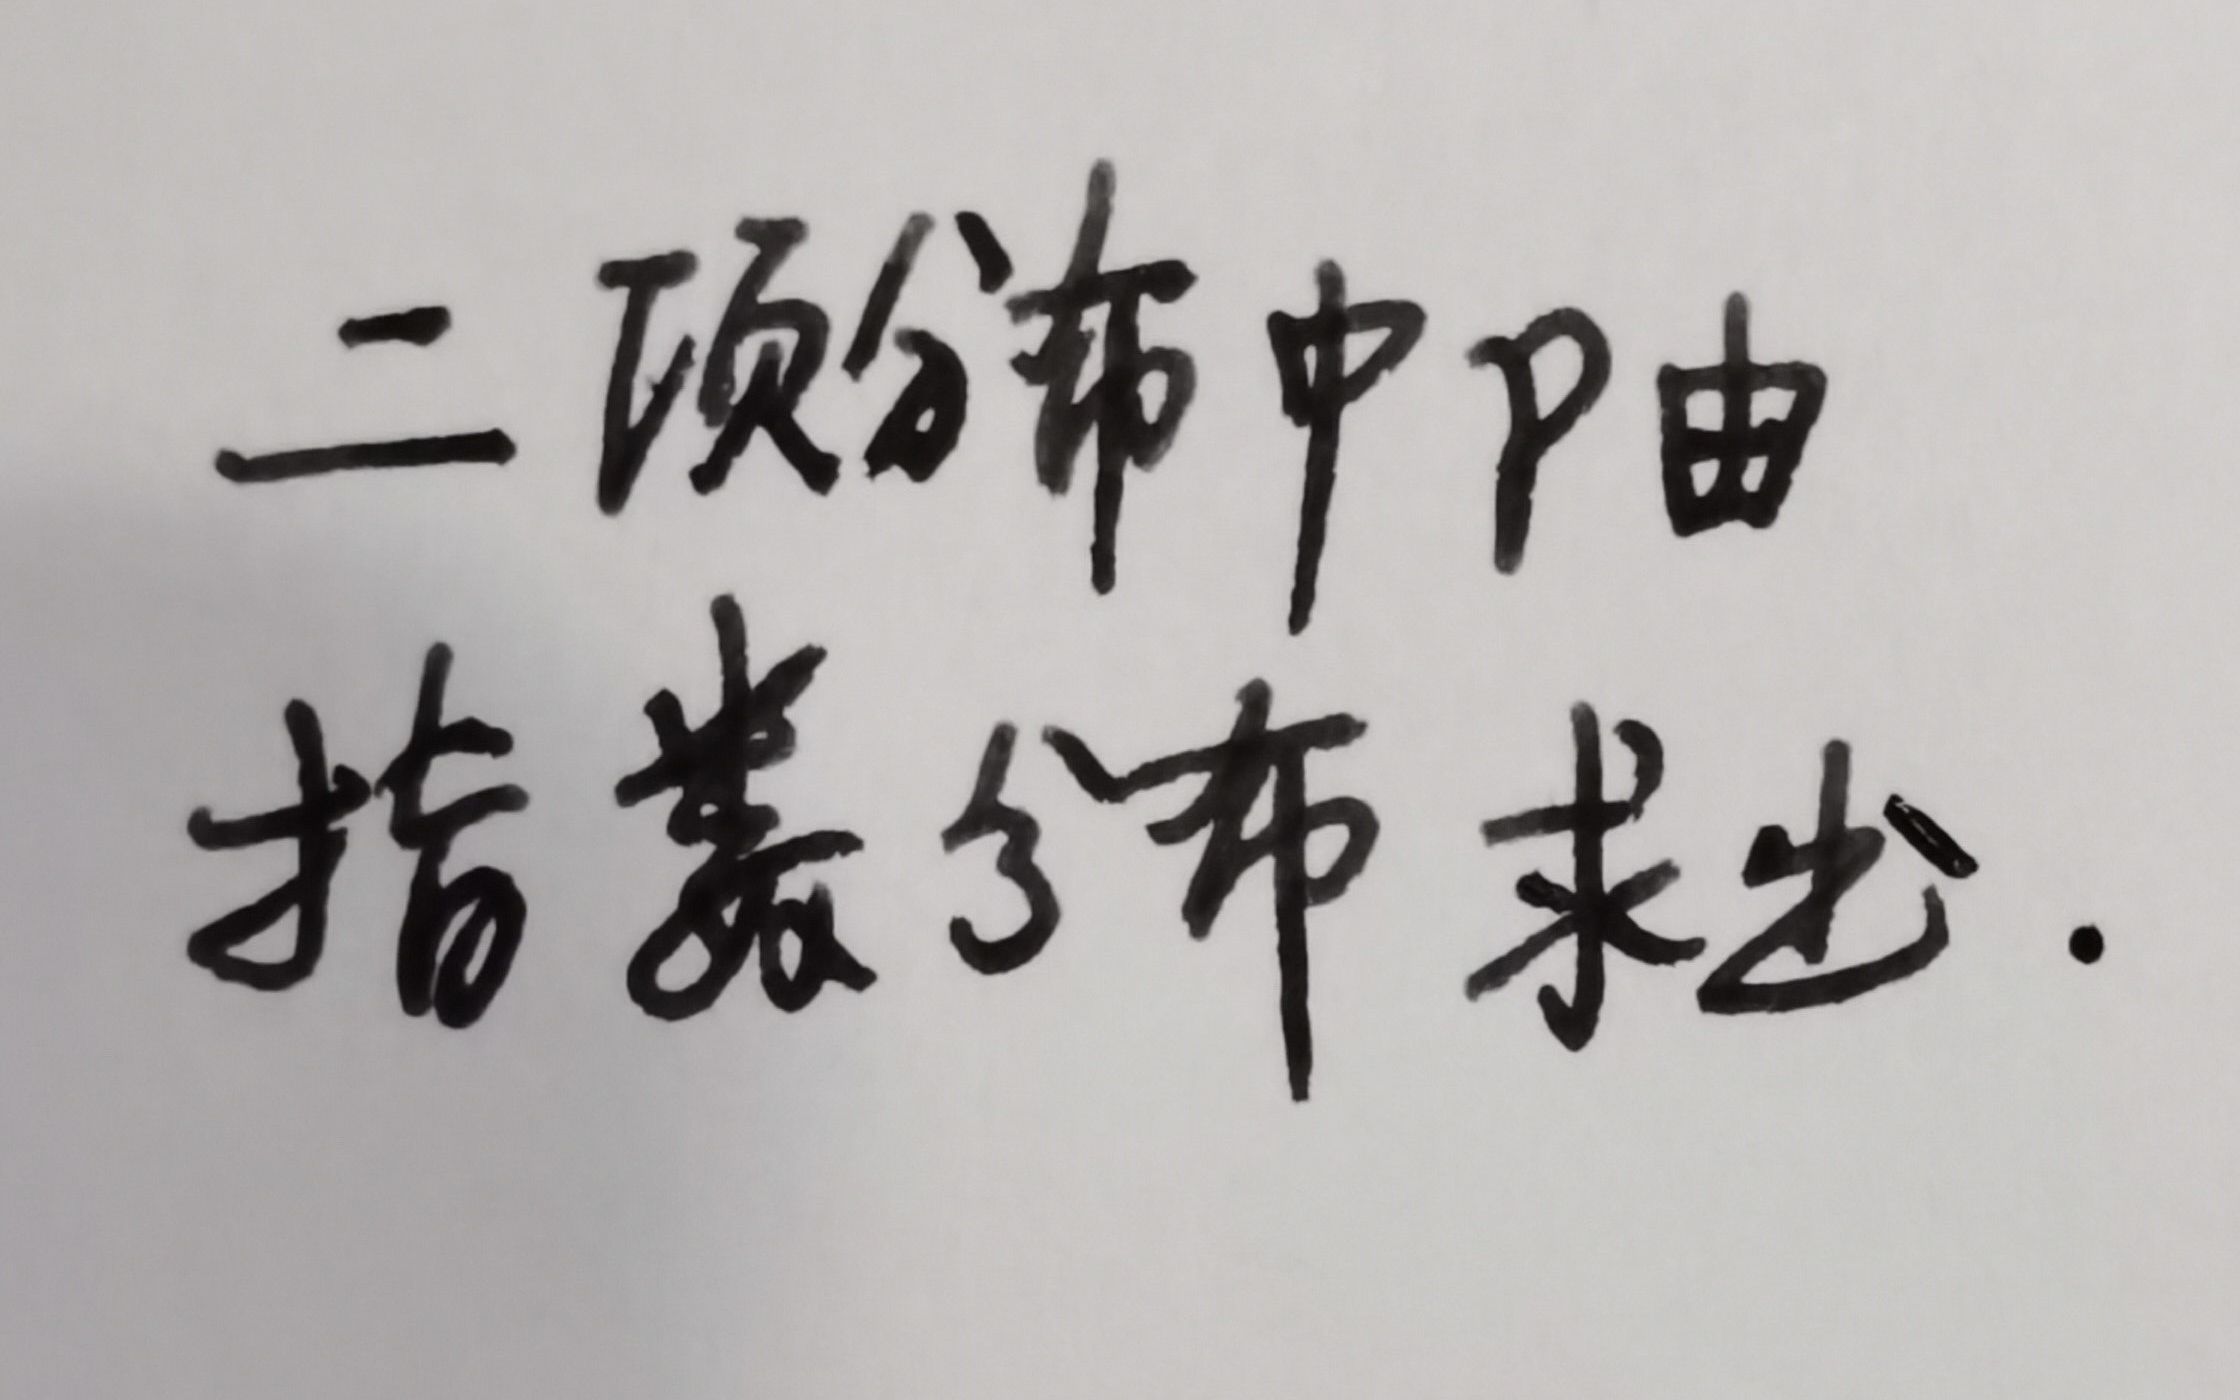 二项分布中P由
指数分布求出.